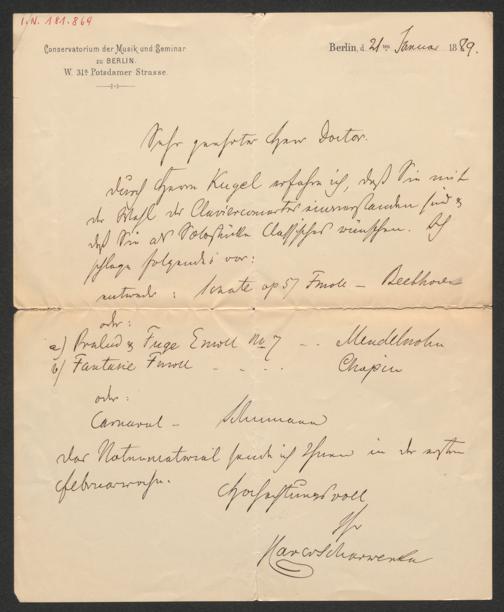 I.N. 181.869
Conservatorium der Musik und Seminar
zu BERLIN.
W. 31ª Potsdamer Strasse.
Berlin, d. 21ten Januar 1889.
Sehr geehrter Herr Doctor.
Durch Herrn Kugel erfahre ich, daß Sie mit
der Wahl des Clavierconcertes einverstanden sind &
daß Sie als Solostücke Classisches wünschen. Ich
schlage folgendes vor:
entweder: Sonate op 57 Fmoll – Beethoven
oder:
a) Prälud & Fuge Emoll No 7 - .. Mendelsohn
b) Fantasie Fmoll - - . . Chopin
oder:
Carnaval – Schumann
Das Notenmaterial sende ich Ihnen in der ersten
Februarwoche.
Hochachtungsvoll
Ihr
Xaver Scharwenka